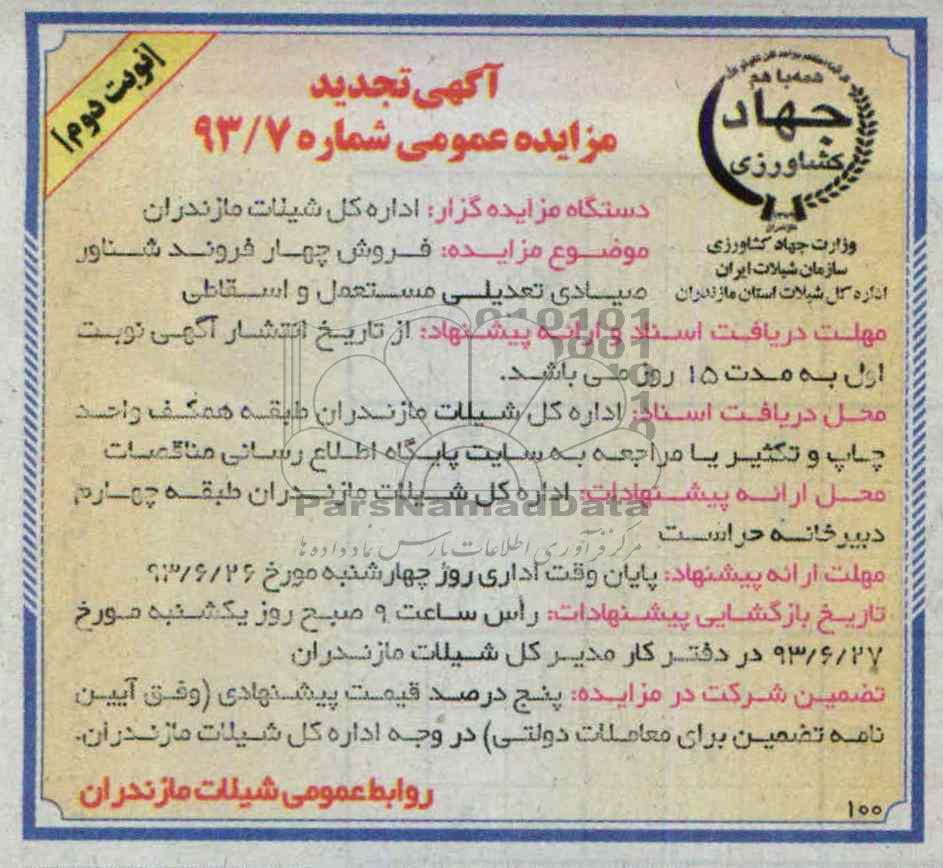 نوبت دوم
همه با هم
جهاد
کشاورزی
وزارت جهاد کشاورزی
سازمان شیلات ایران
اداره کل شیلات استان مازندران
آگهی تجدید
مزایده عمومی شماره ۹۳/۷
دستگاه مزایده گزار: اداره کل شیلات مازندران
موضوع مزایده: فروش چهار فروند شناور
صیادی تعدیلی مستعمل و اسقاطی
مهلت دریافت اسناد و ارائه پیشنهاد: از تاریخ انتشار آگهی نوبت
اول به مدت ۱۵ روز می باشد.
محل دریافت اسناد: اداره کل شیلات مازندران طبقه همکف واحد
چاپ و تکثیر یا مراجعه به سایت پایگاه اطلاع رسانی مناقصات
محل ارائه پیشنهادات: اداره کل شیلات مازندران طبقه چهارم
دبیرخانه حراست
مهلت ارائه پیشنهاد: پایان وقت اداری روز چهارشنبه مورخ ۹۳/۶/۲۶
تاریخ بازگشایی پیشنهادات: رأس ساعت ۹ صبح روز یکشنبه مورخ
۹۳/۶/۲۷ در دفتر کار مدیر کل شیلات مازندران
تضمین شرکت در مزایده: پنج درصد قیمت پیشنهادی (وفق آیین
نامه تضمین برای معاملات دولتی) در وجه اداره کل شیلات مازندران.
روابط عمومی شیلات مازندران
۱۰۰
ParsNamadData
مرکز فرآوری اطلاعات پارس نماد داده ها